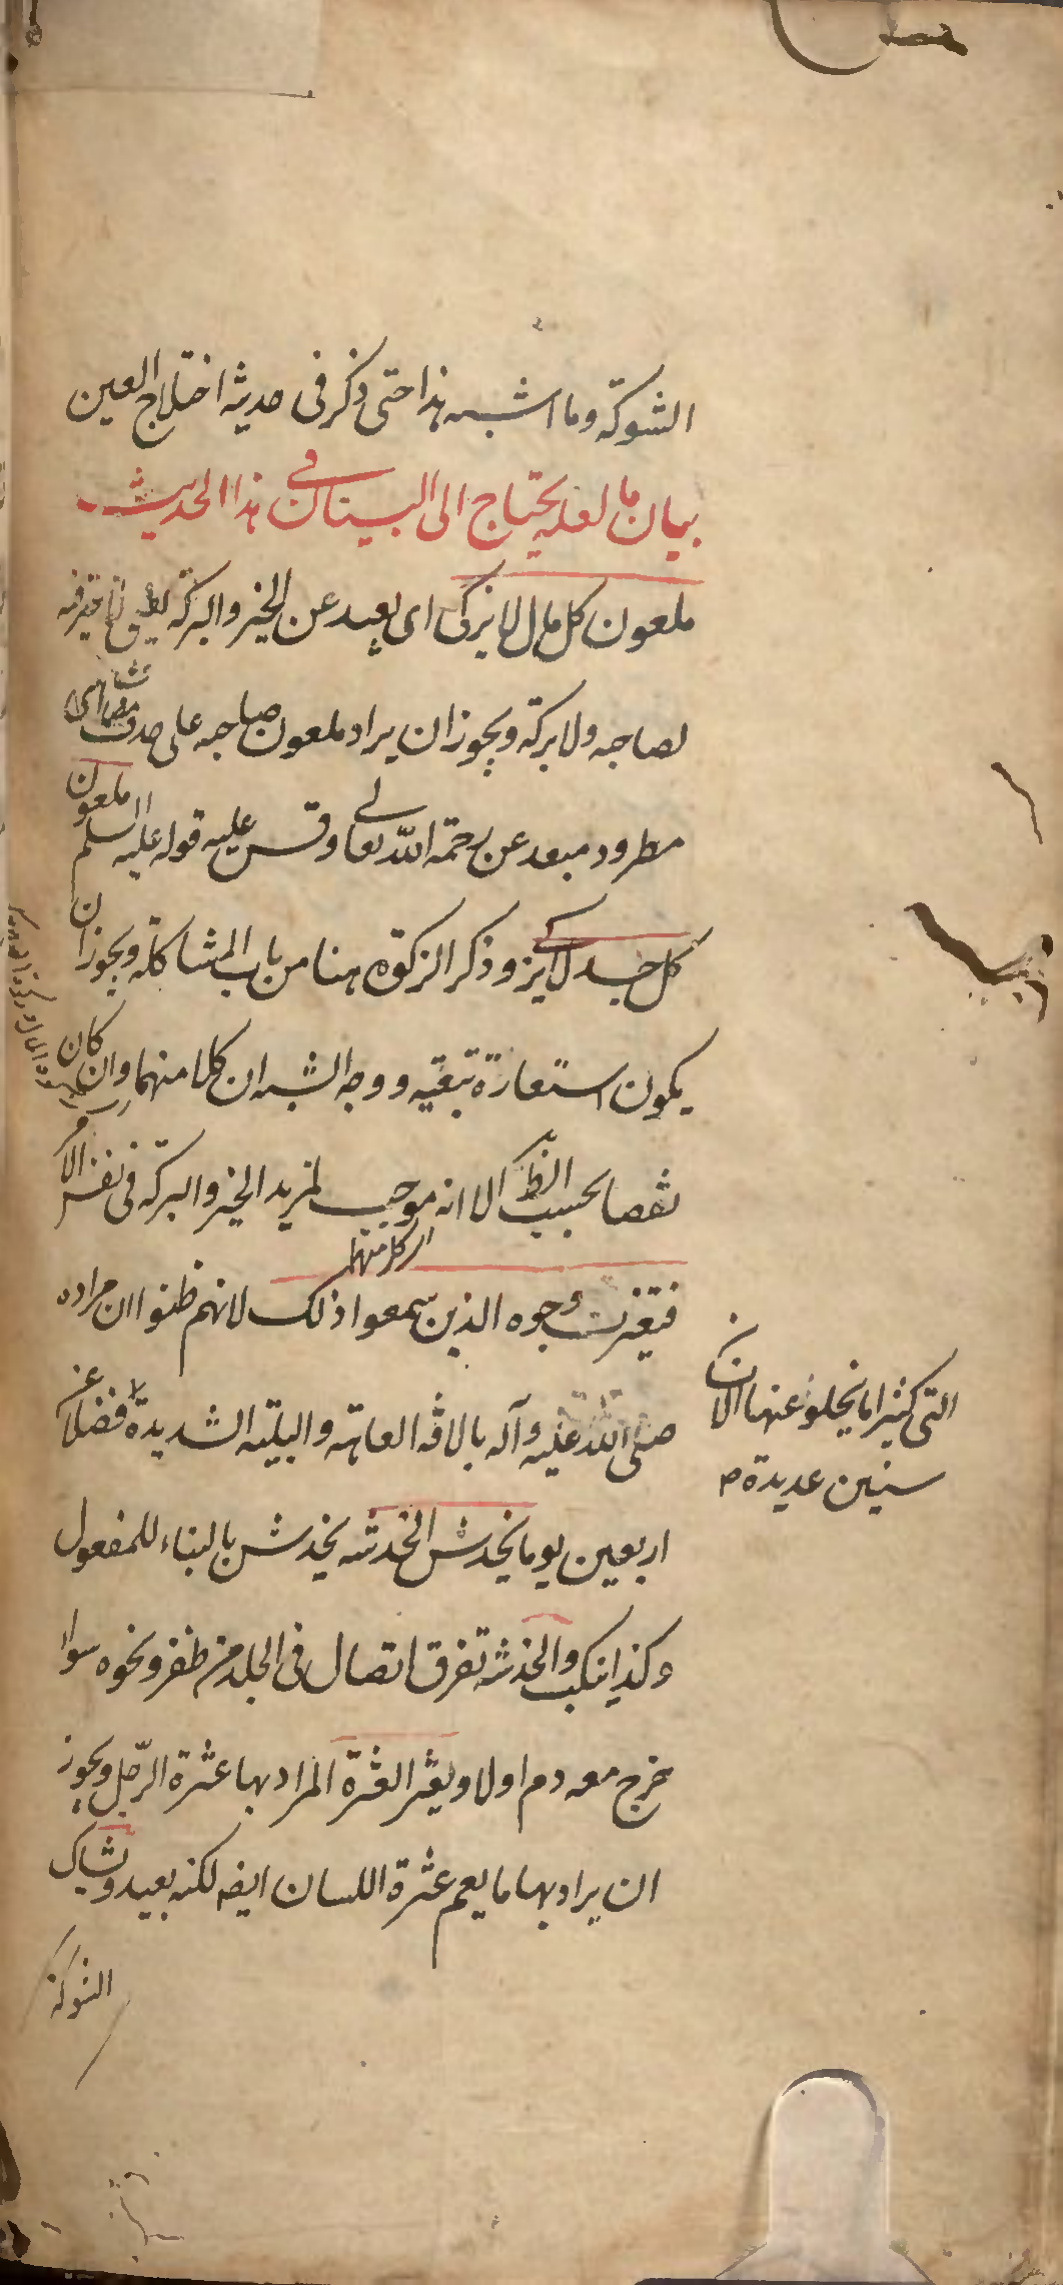 الشوكة وما اشبه هذا حتى ذكر فى حديثه اختلاج العين
بيان ما لعله يحتاج الى البيان فى هذا الحديث
ملعون كل مال لا يزكى اى بعيد عن الخير والبركة
لصاحبه ولا بركة ويجوز ان يراد ملعون صاحبه على حذف مضاف اى
مطرود مبعد عن رحمة الله تعالى وقس عليه قوله عليه السلم ملعون
كل جسد لا يزكى وذكر الزكوة هنا من باب المشاكلة ويجوز ان
يكون استعارة تبعيه ووجه الشبه ان كلا منهما وان كان
نقصا بحسب الظ الا انه موجب لمزيد الخير والبركة فى نفس الامر
فتغيرت وجوه الذين سمعوا ذلك لانهم ظنوا ان مراده
صلى الله عليه وآله بالافة العاهة والبلية الشديدة فضلا عن
التى كثيرا ما يخلو عنها الانسان
سنين عديدة
اربعين يوما يخدش الخدشه يخدش بالبناء للمفعول
وكذا ينكب والخدشه تفرق اتصال فى الجلد من ظفر ونحوه سواء
خرج معه دم اولا ويعثر العثرة المراد بها عثرة الرجل ويجوز
ان يراد بها ما يعم عثرة اللسان ايضا لكنه بعيد ويشاك
الشوكة